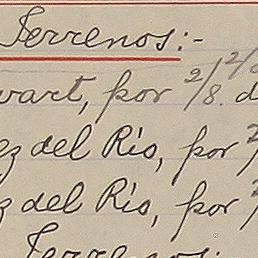 Terrenos:-
wart, por 2/8. d
ez del Río, por 2/
z del Río, por 2/
Terrenos: